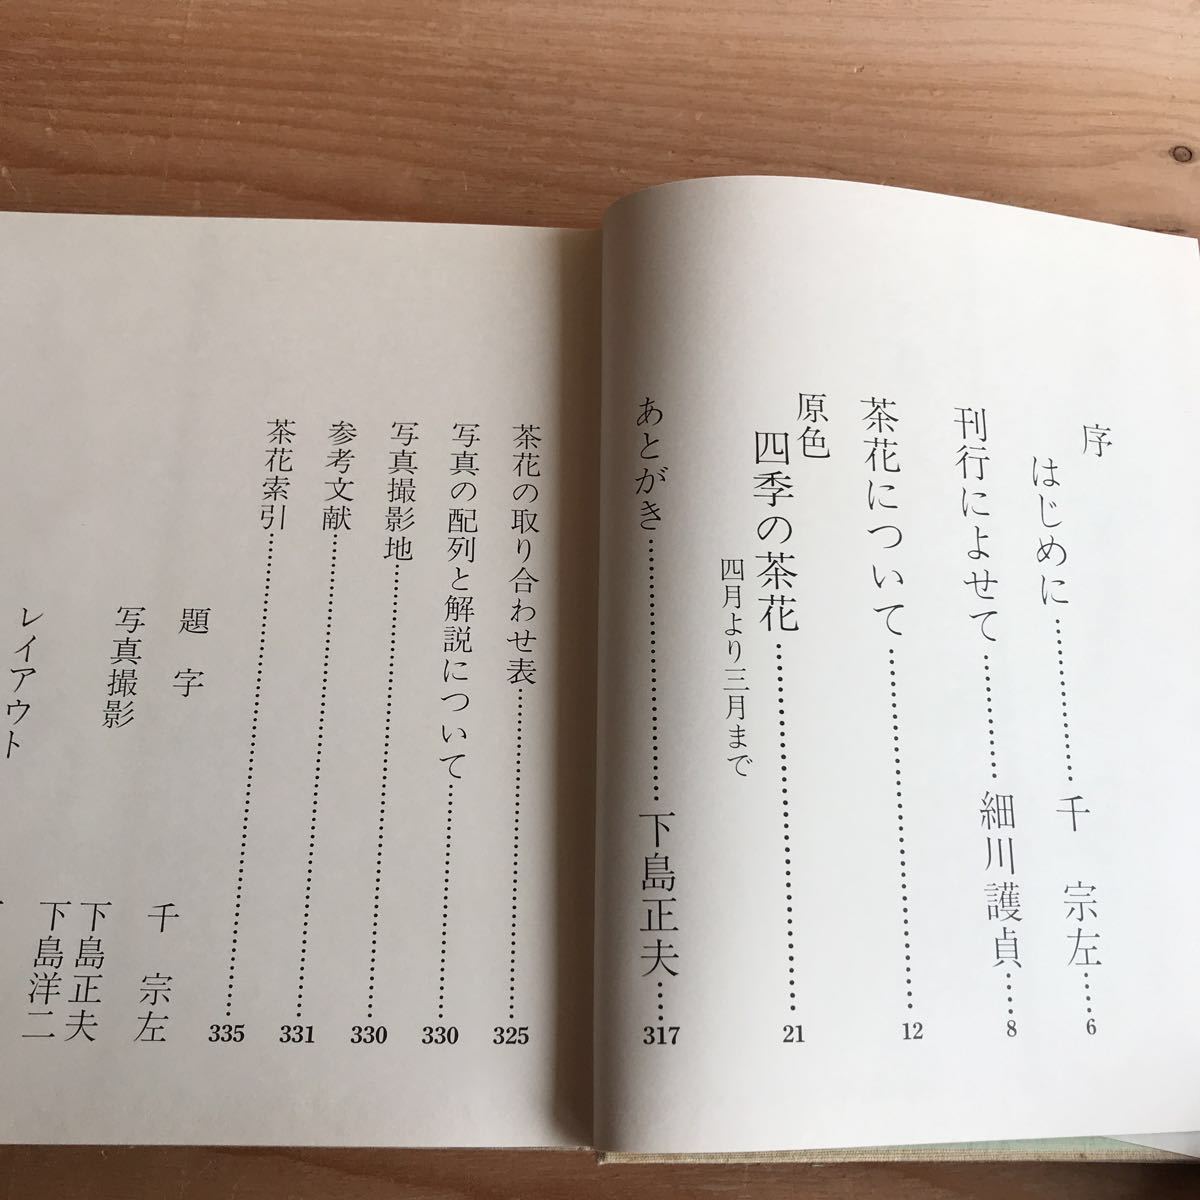 序
はじめに……………千 宗左……6
刊行によせて…………細川護貞……8
茶花について……………………12
原色
四季の茶花……………………21
四月より三月まで
あとがき……………………下島正夫……317
茶花の取り合わせ表……………………325
写真の配列と解説について……………………330
写真撮影地……………………330
参考文献……………………331
茶花索引……………………335
題 字 千 宗左
写真撮影 下島正夫
下島洋二
レイアウト